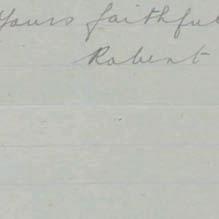 Yours faithfu
Robert